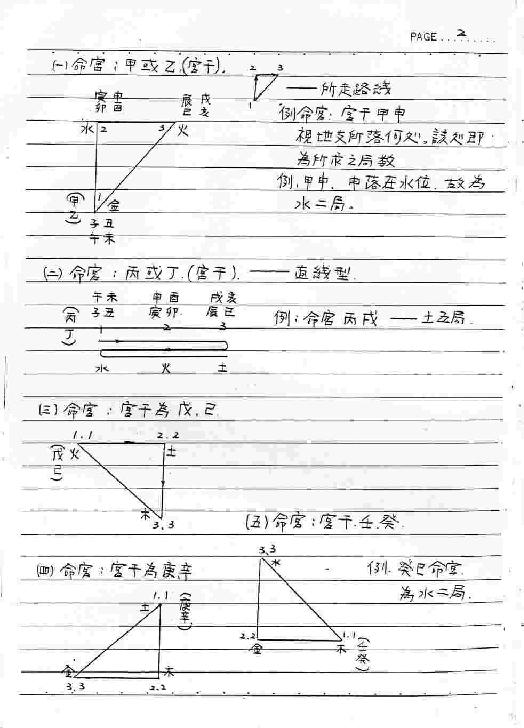 PAGE 2
(一) 命宮：甲或乙.(宮干).
2 3
1
所走路线
寅申 辰戌
卯酉 巳亥
水 2 3 火
例命宮：宮干甲申
視地支所落何处,該处即
為所求之局数
例,甲申, 申落在水位, 故為
水二局。
(甲乙) 1 金
子丑
午未
(二) 命宮：丙或丁.(宮干). 直線型.
午未 申酉 戌亥
(丙丁) 子丑 寅卯 辰巳
1 2 3
水 火 土
例：命宮丙戌 土五局.
(三) 命宮：宮干為戊,己
1.1 2.2
(戊己) 火 土
木
3.3
(五) 命宮：宮干.壬.癸.
(四) 命宮：宮干為庚辛
1.1
土 (庚辛)
金 木
3.3 2.2
3.3
水
例.癸巳命宮
為水二局.
2.2 1.1
金 木 (壬癸)